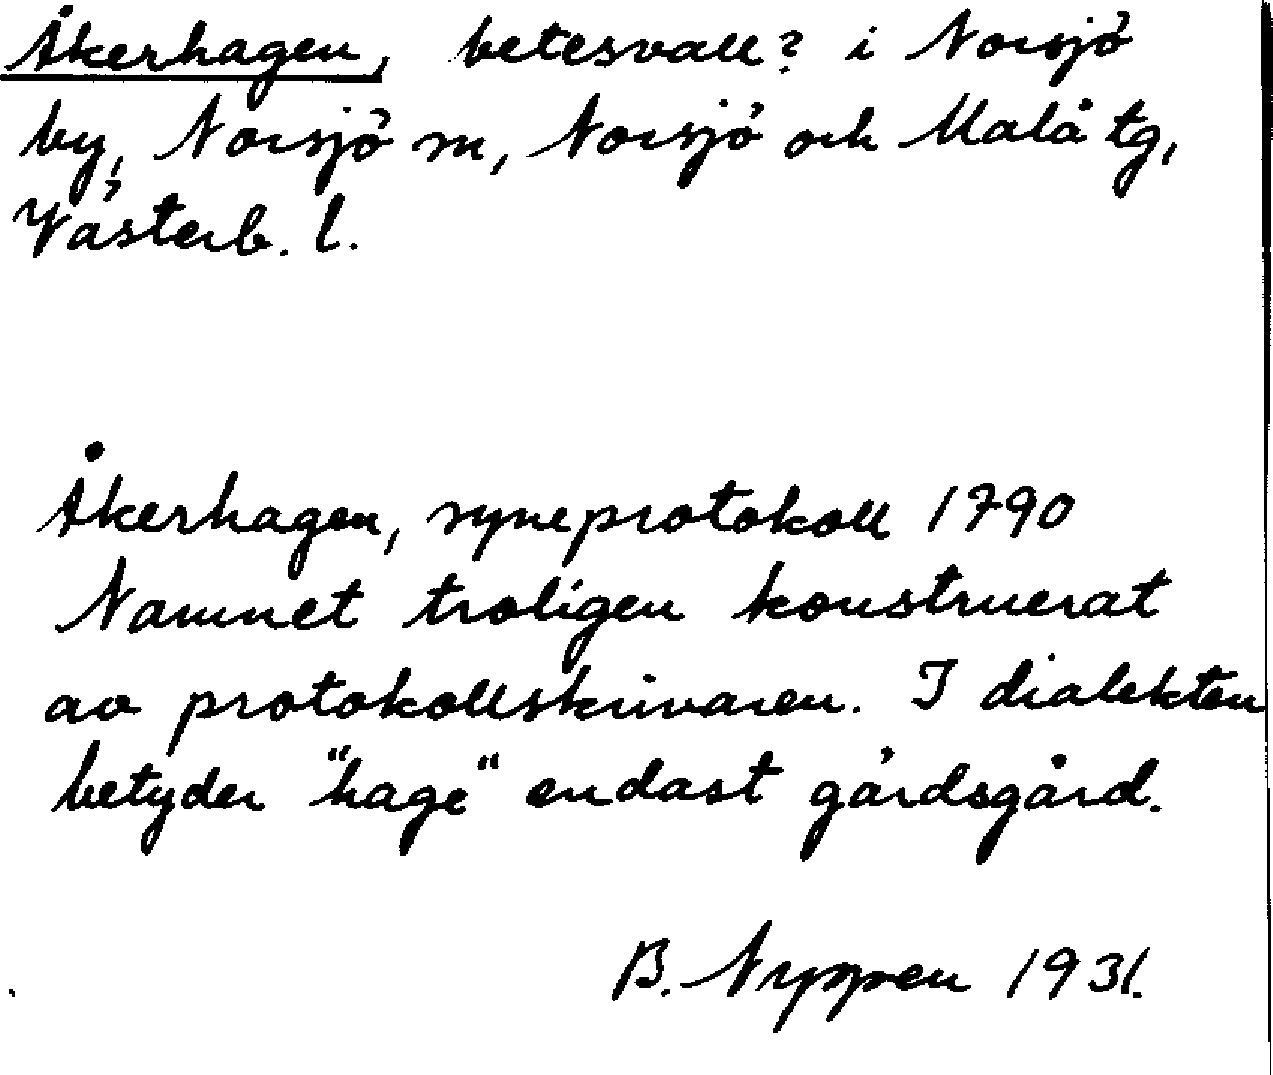 Åkerhagen, betesvall? i Norsjö
by, Norsjö sn, Norsjö och Malå tg,
Västerb. l.
Åkerhagen, syneprotokoll 1790
Namnet troligen konstruerat
av protokollskrivaren. I dialekten
betyder "hage" endast gårdsgård.
B. Nyppen 1931.